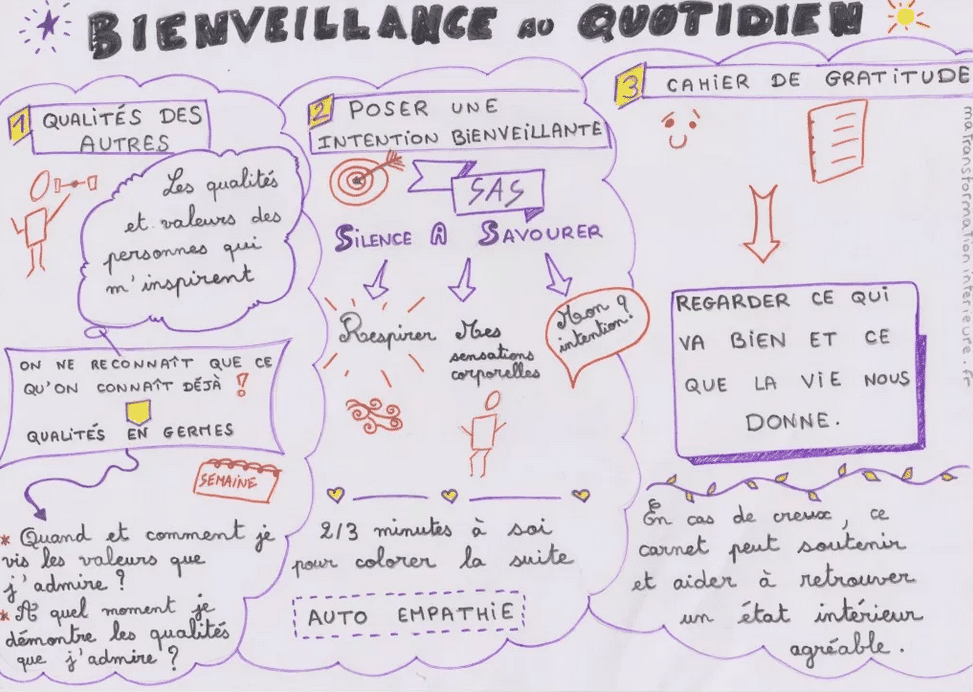 BIENVEILLANCE AU QUOTIDIEN
1 QUALITÉS DES
AUTRES
Les qualités
et valeurs des
personnes qui
m'inspirent
ON NE RECONNAÎT QUE CE
QU'ON CONNAÎT DÉJÀ !
QUALITÉS EN GERMES
SEMAINE
* Quand et comment je
vis les valeurs que
j'admire ?
* A quel moment je
démontre les qualités
que j'admire ?
2 POSER UNE
INTENTION BIENVEILLANTE
SAS
SILENCE À SAVOURER
Respirer
Mes
sensations
corporelles
Mon
intention ?
2/3 minutes à soi
pour colorer la suite
AUTO EMPATHIE
3 CAHIER DE GRATITUDE
REGARDER CE QUI
VA BIEN ET CE
QUE LA VIE NOUS
DONNE.
En cas de creux, ce
carnet peut soutenir
et aider à retrouver
un état intérieur
agréable.
matransformationinterieure.fr